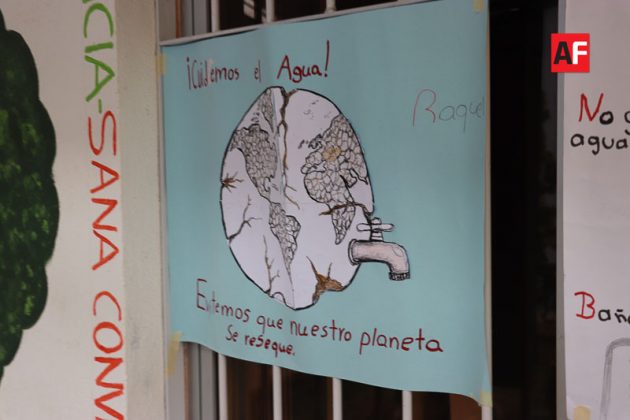 CIA-SANA CONV
¡Cuidemos el Agua!
Raquel
Evitemos que nuestro planeta
se reseque.
AF
No
agua
Bañ